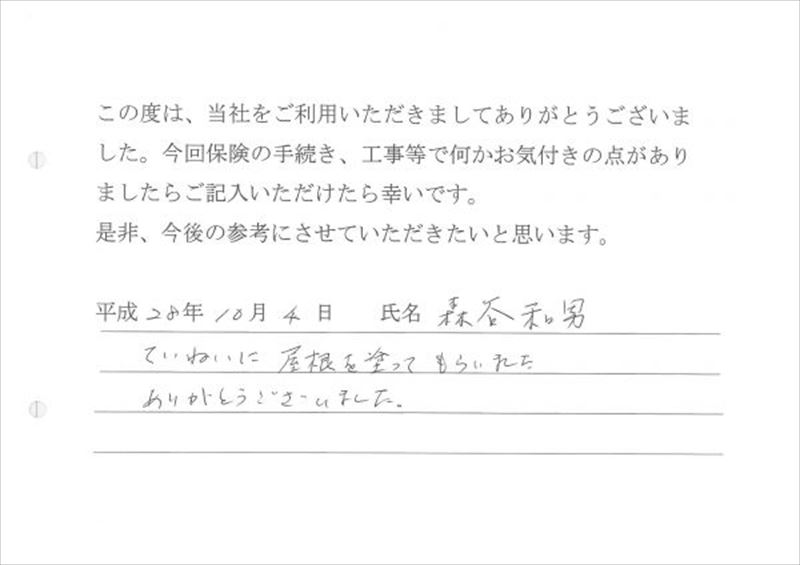 この度は、当社をご利用いただきましてありがとうございま
した。今回保険の手続き、工事等で何かお気付きの点があり
ましたらご記入いただけたら幸いです。
是非、今後の参考にさせていただきたいと思います。
平成28年10月4日 氏名 森谷和男
ていねいに 屋根を塗って もらいました
ありがとうございました。